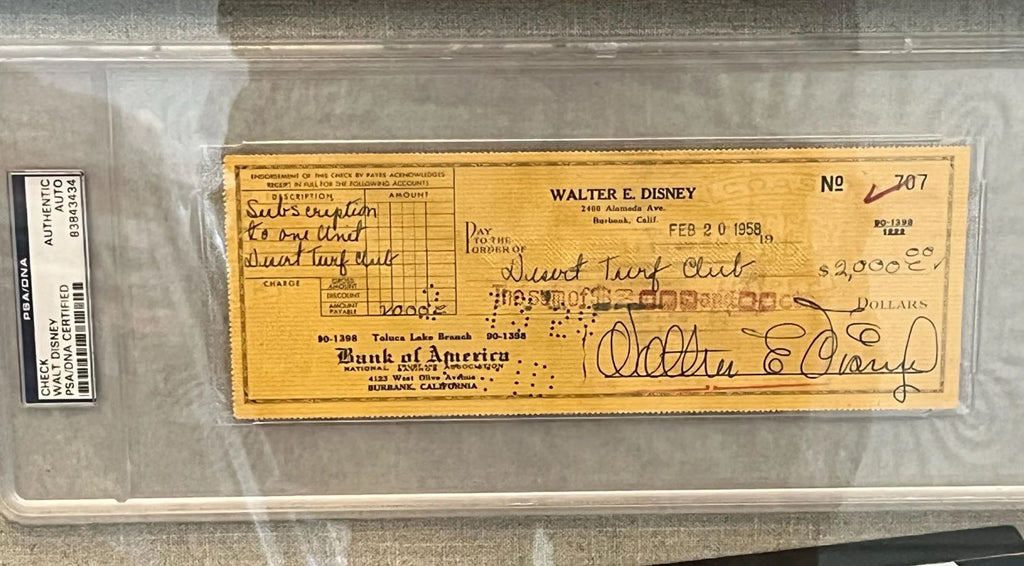 PSA/DNA
CHECK
WALT DISNEY
PSA/DNA CERTIFIED
AUTHENTIC
AUTO
83843434
ENDORSEMENT OF THIS CHECK BY PAYEE ACKNOWLEDGES
RECEIPT IN FULL FOR THE FOLLOWING ACCOUNTS
DESCRIPTION AMOUNT
Subscription
to one Unit
Desert Turf Club
CHARGE
DISCOUNT
AMOUNT
PAYABLE 2000
90-1398 Toluca Lake Branch 90-1398
Bank of America
NATIONAL SAVINGS ASSOCIATION
4123 West Olive Avenue
BURBANK, CALIFORNIA
WALTER E. DISNEY
2400 Alameda Ave.
Burbank, Calif.
No 707
90-1398
1222
FEB 20 1958 19
PAY
TO THE
ORDER OF
Desert Turf Club $2,000 00
The sum of and DOLLARS
Walter E Disney